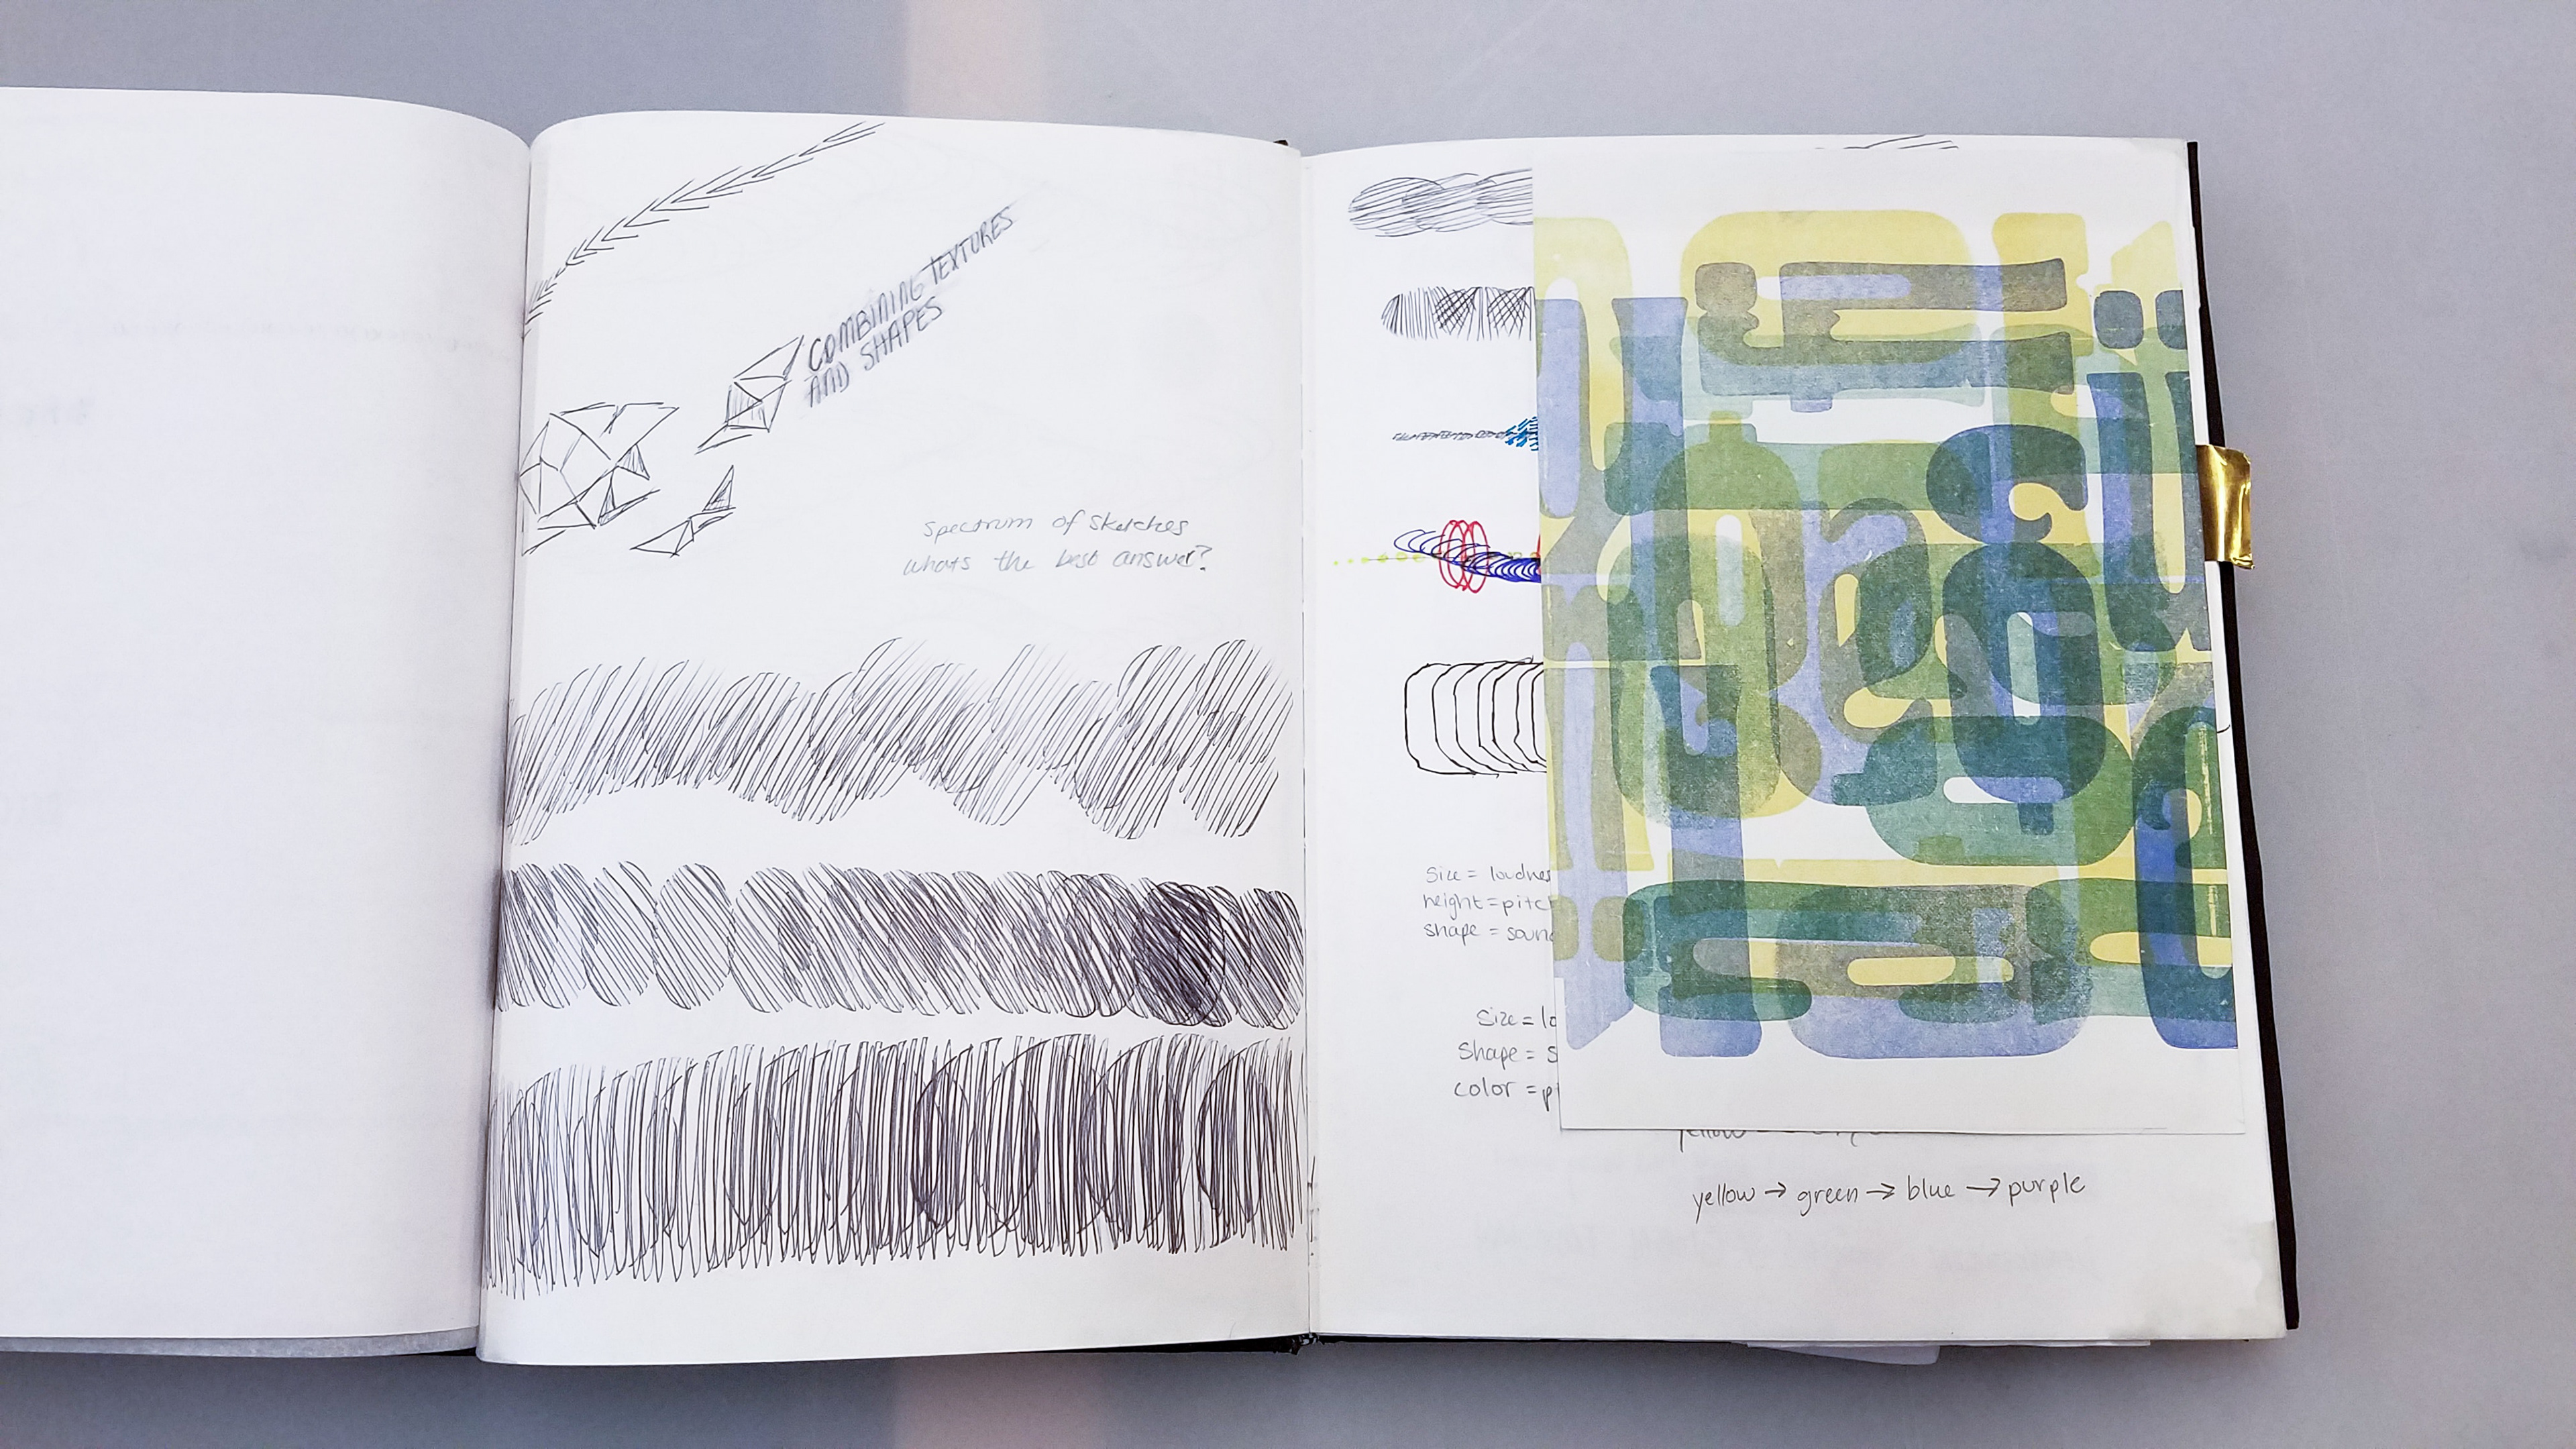 COMBINING TEXTURES
AND SHAPES
spectrum of sketches
whats the best answer?
Size = loudnes
height = pitch
shape = soun
Size = lo
Shape = s
color = p
yellow
yellow → green → blue → purple